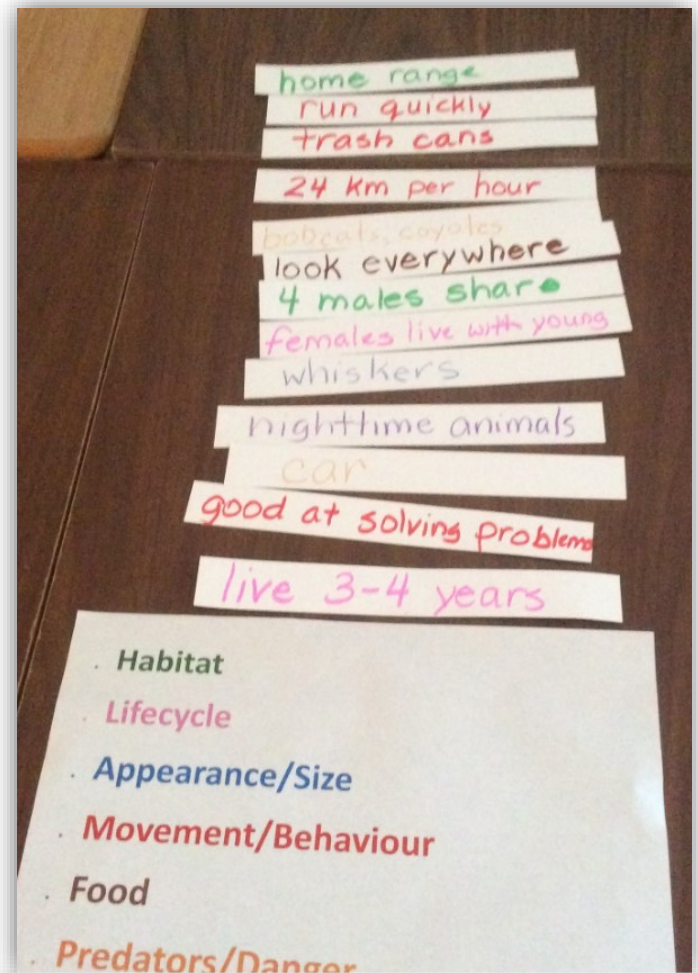 home range
run quickly
trash cans
24 km per hour
bobcats, coyotes
look everywhere
4 males share
females live with young
whiskers
nighttime animals
car
good at solving problems
live 3-4 years
. Habitat
. Lifecycle
. Appearance/Size
. Movement/Behaviour
. Food
. Predators/Danger